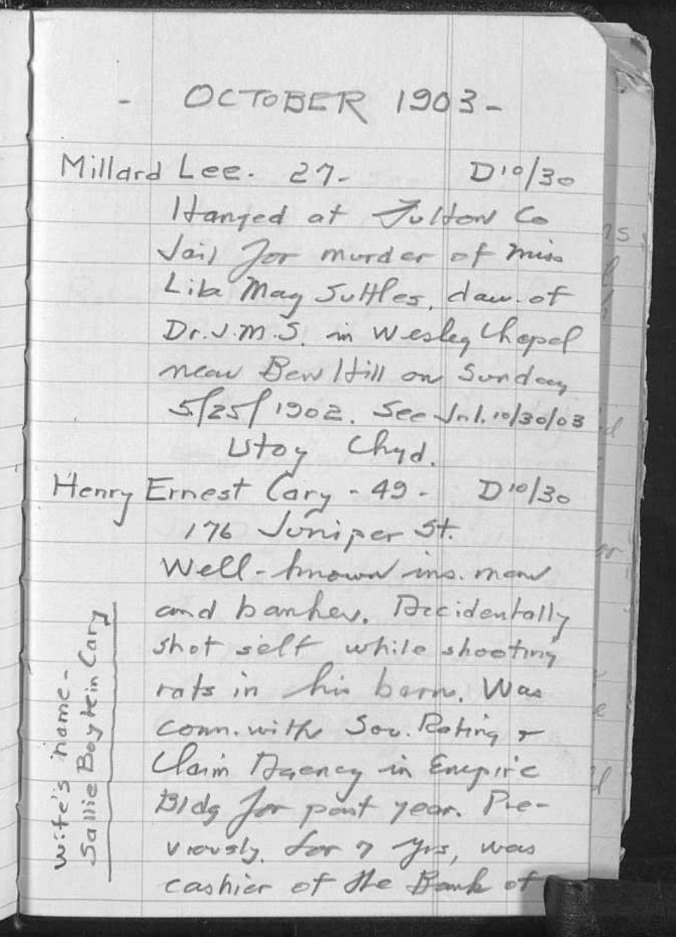 - OCTOBER 1903-
Millard Lee. 27- D10/30
Hanged at Fulton Co
Jail for murder of Miss
Lila May Suttles, dau. of
Dr. J.M.S. in Wesley Chapel
near Ben Hill on Sunday
5/25/1902. See Jnl. 10/30/03
Utoy Chyd.
Henry Ernest Cary - 49 - D10/30
176 Juniper St.
Well-known ins. man
and banker. Accidentally
shot self while shooting
rats in his barn. Was
conn. with Sou. Rating &
Claim Agency in Empire
Bldg for past year. Pre-
viously, for 7 yrs, was
cashier of the Bank of
Wife's name-
Sallie Boykin Cary